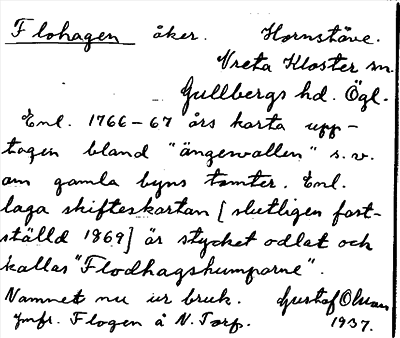 Flohagen åker. Hornstäve.
Vreta Kloster sn.
Gullbergs hd. Ögl.
Enl. 1766-67 års karta upp-
tagen bland "ängesvallen" s.v.
om gamla byns tomter. Enl.
laga skifteskartan [slutligen fast-
ställd 1869] är stycket odlat och
kallas "Flodhagshumparne".
Namnet nu ur bruk. Gustaf Olsson
Jmfr. Flogen å N. Torp. 1937.